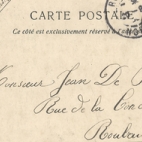 CARTE POSTA
Ce côté est exclusivement réservé à l'a
Monsieur Jean De
Rue de la Con
Roubai